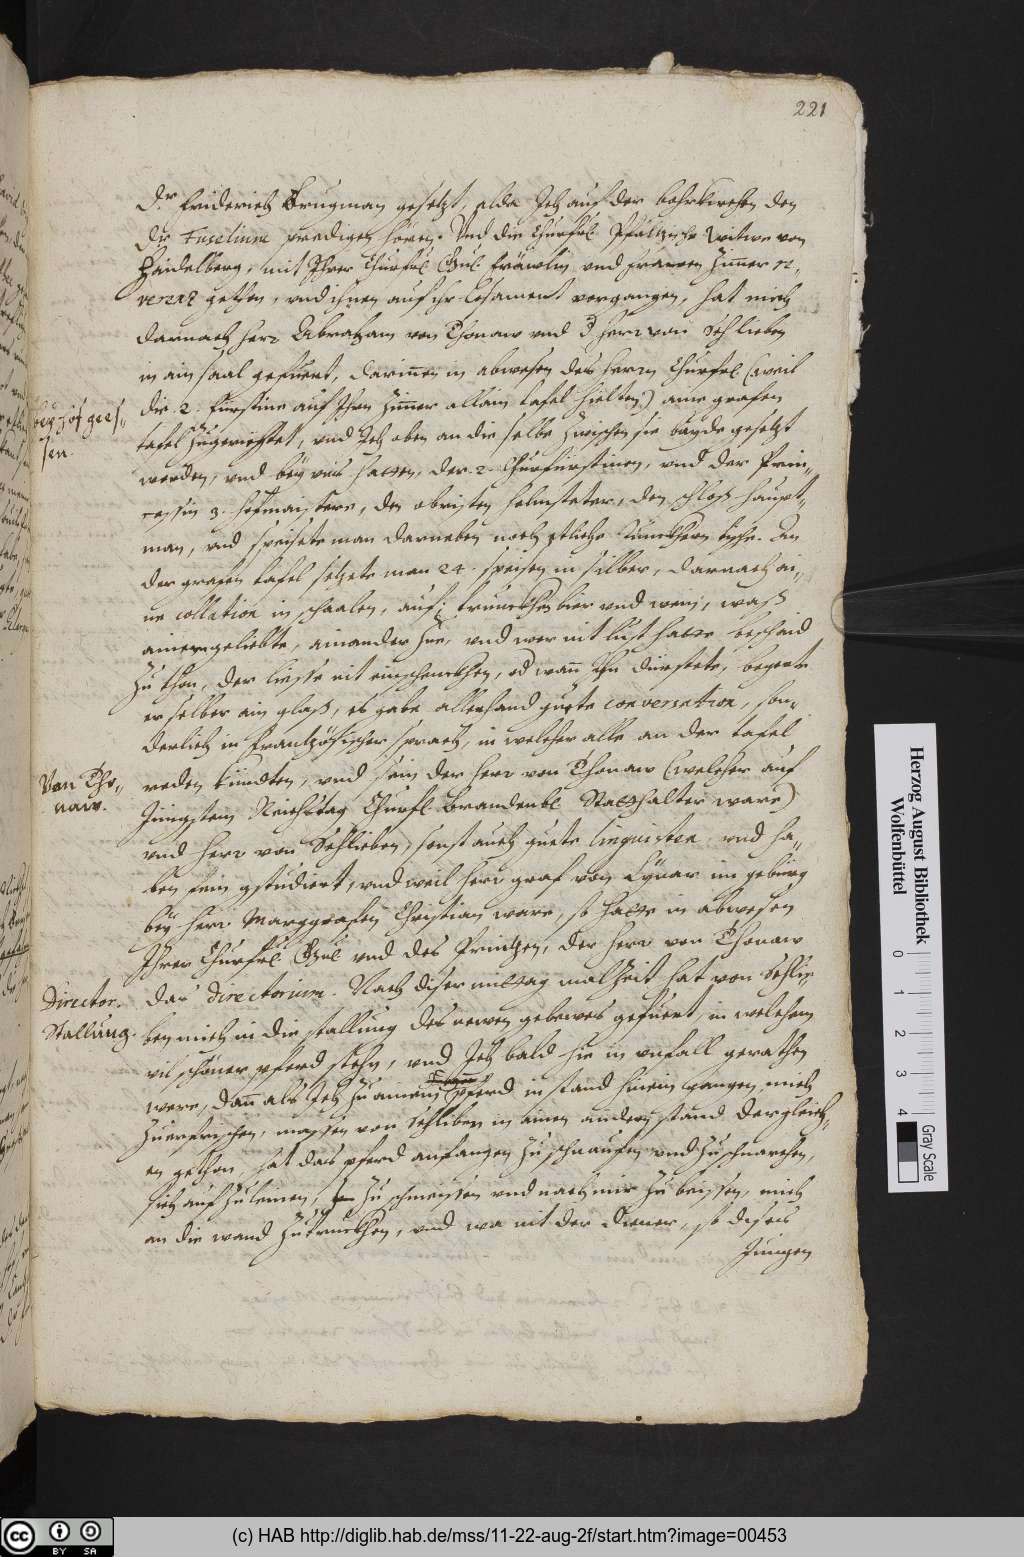 221
Dr. Friderich Brugman gesetzt, alda Ich auf der bohrkirchen den
Dr. Fuselium predigen hören. Und die Churfrl. Pfältzische Witwe von
Haidelberg, mit Ihrer Churfrl. Gnl. fräwlin und frawen Zimmer re-
verentz gethon, und ihnen auf ihr losament vorgangen, hat mich
darnach herr Abraham von Thonaw und herr von Schlieben
in ain saal gefuert, darinnen in abwesen des herrn Churfrl. (weil
die 2. fürstine auf Ihren Zimer allain tafel hielten) aine grafen
bey hof gees-
sen.
tafel zugerichtet, und Ich oben an die selbe zwischen sie bayde gesetzt
worden, und bey uns sassen, der 2. Churfürstinen, und der Prin-
cessin 3. hofmaistere, der obristen, den schloß haupt-
man, und speisete man darneben noch etliche Junckhern tische. An
der grafen tafel setzte man 24. speisen in silber, darnach ai-
ne collation in schaalen, auch trunckhen bier und wein, waß
ainem geliebte, ainander zue, und wer nit lust hatte beschaid
zu thon, der liesse nit einschenckhen, od wan ihn dürstete, begerte
er selber ain glaß, es gabe allerhand guete conversation, son-
derlich in frantzösischer sprach, in welcher alle an der tafel
Von Tho-
naw.
reden kundten, und sein der herr von Thonaw (welcher auf
Jüngstem Reichstag Churfl. Brandenbl. Statthalter ware)
und herr von Schlieben, sonst auch guete linguisten, und ha-
ben fein gstudiert, und weil herr graf von Lynar im gebürg
bey herr Marggrafen Christian ware, so hatte in abwesen
Ihrer Churfrl. Gnl. und des Printzen, der herr von Thonaw
Director.
das Directorium. Nach diser mittag malzeit hat von Schlie-
Stallung.
ben mich in die stallung des newen gebewes gefuert, in welchem
vil schöner pferd stehn, und Ich bald hie in unfall gerathen
were, dann als Ich zu ainem pferd in stand hinein gangen, mich
zuerfrischen, massen von Schlieben in ainen andern stand dergleich-
en gethon, hat das pferd anfangen zu schnaufen und zu schnarchen,
sich auf zulainen, zu schmeissen und nach mir zu beissen, mich
an die wand zutruckhen, und wa nit der Diener, so dises
Jungen
Herzog August Bibliothek
Wolfenbüttel
0 1 2 3 4
Gray Scale
cc BY SA
(c) HAB http://diglib.hab.de/mss/11-22-aug-2f/start.htm?image=00453